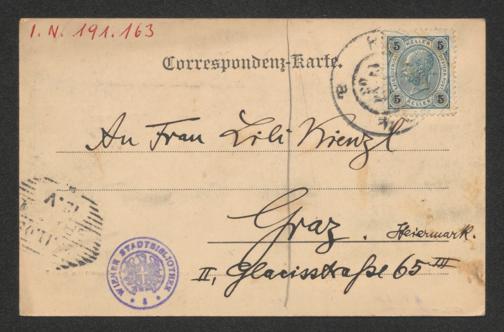 I.N. 191.163
Correspondenz-Karte.
5 HELLER 5
5 HELLER 5
An Frau Lili Kienzl
Graz. Steiermark.
II, Glacisstraße 65 III
WIENER STADTBIBLIOTHEK